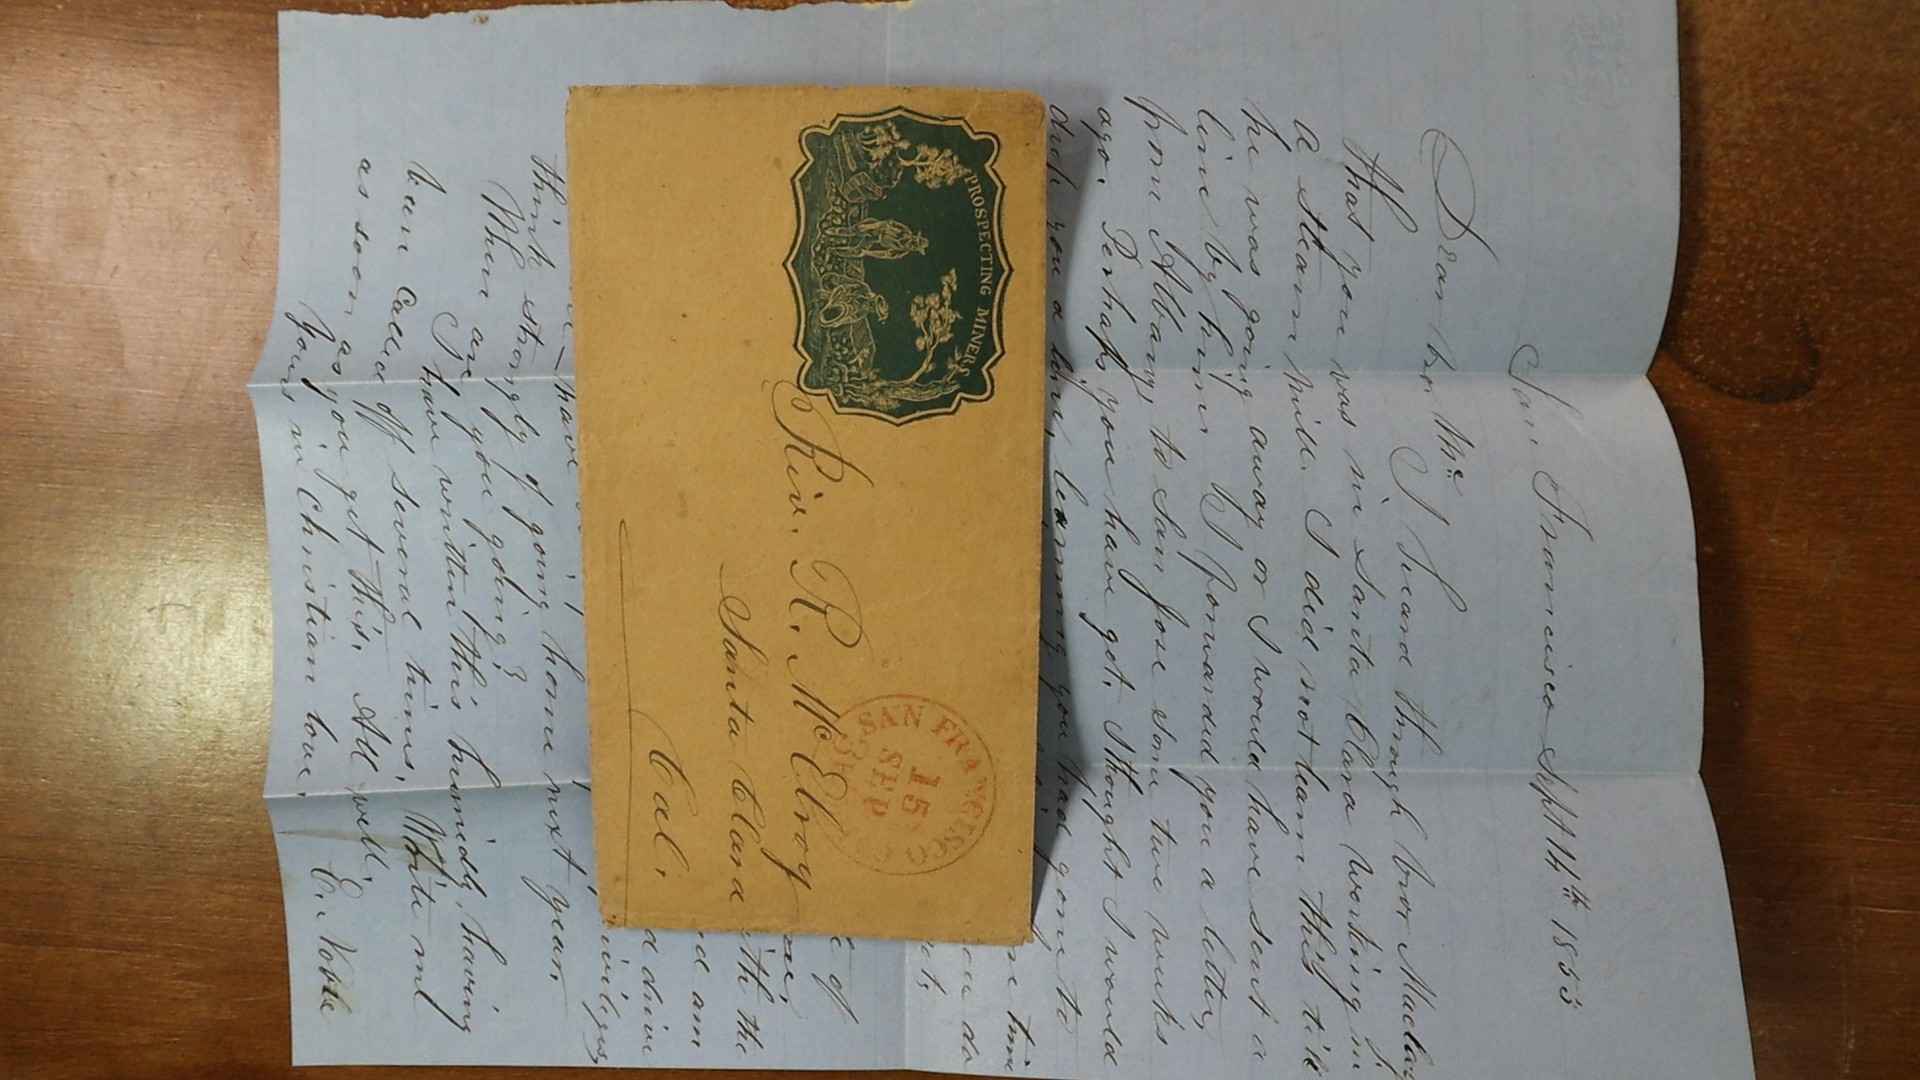 San Francisco Sept 14th 1855
Dear bro. Mc
I heard through bro. Maclay
that you was in Santa Clara working in
a steam mill. I did not learn this till
he was going away or I would have sent a
line by him. I forwarded you a letter
from Albany, to San Jose some two weeks
ago. Perhaps you have got. Thought I would
drop you a line, learning you had gone to
time
do
of
with the
and am
drive
privileges,
have
think strongly of going home next year.
When are you going?
I have written this hurriedly, having
been called off several times. Write me
as soon as you get this. All well.
Yours in Christian love.
E. Noble
PROSPECTING MINERS
SAN FRANCISCO
15
SEP
Rev. R. McElroy
Santa Clara
Cal.